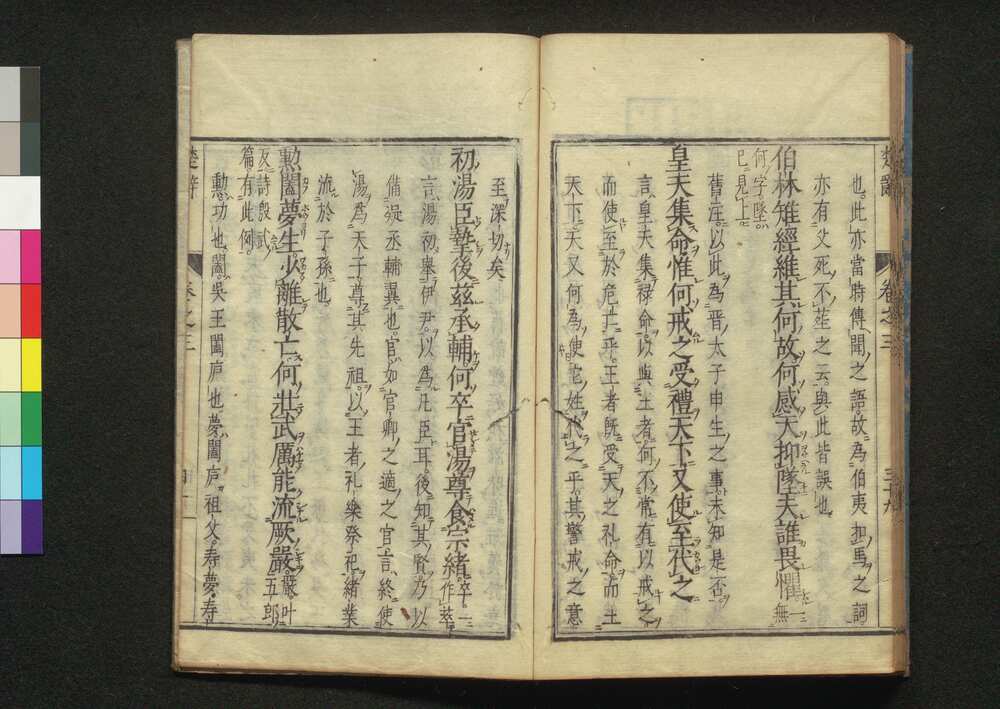 楚辭 卷之三 三十九
也此亦當時傳聞之語故為伯夷扣馬之詞
亦有父死不葬之云與此皆誤也
伯林雉經維其何故何感天抑墜夫誰畏懼一無
何字墜
已見上
舊注以此為晉太子申生之事未知是否
皇天集命惟何戒之受禮天下又使至代之
言皇天集祿命以與王者何不常有以戒之
而使至於危亡乎王者既受天之礼命而王
天下天又何為使它姓代之乎其警戒之意
至深切矣
初湯臣摯後茲承輔何卒官湯尊食宗緒卒一
作萃
言湯初舉伊尹以為凡臣耳後知其賢乃以
備疑丞輔翼也官如官卿之適之官言終使
湯為天子尊其先祖以王者礼樂祭祀緒業
流於子孫也
勲闔夢生少離散亡何壯武厲能流厥嚴嚴叶
五郎
反詩殷武
篇有此例
勲功也闔吳王闔廬也夢闔廬祖父壽夢壽
楚辭 卷之三